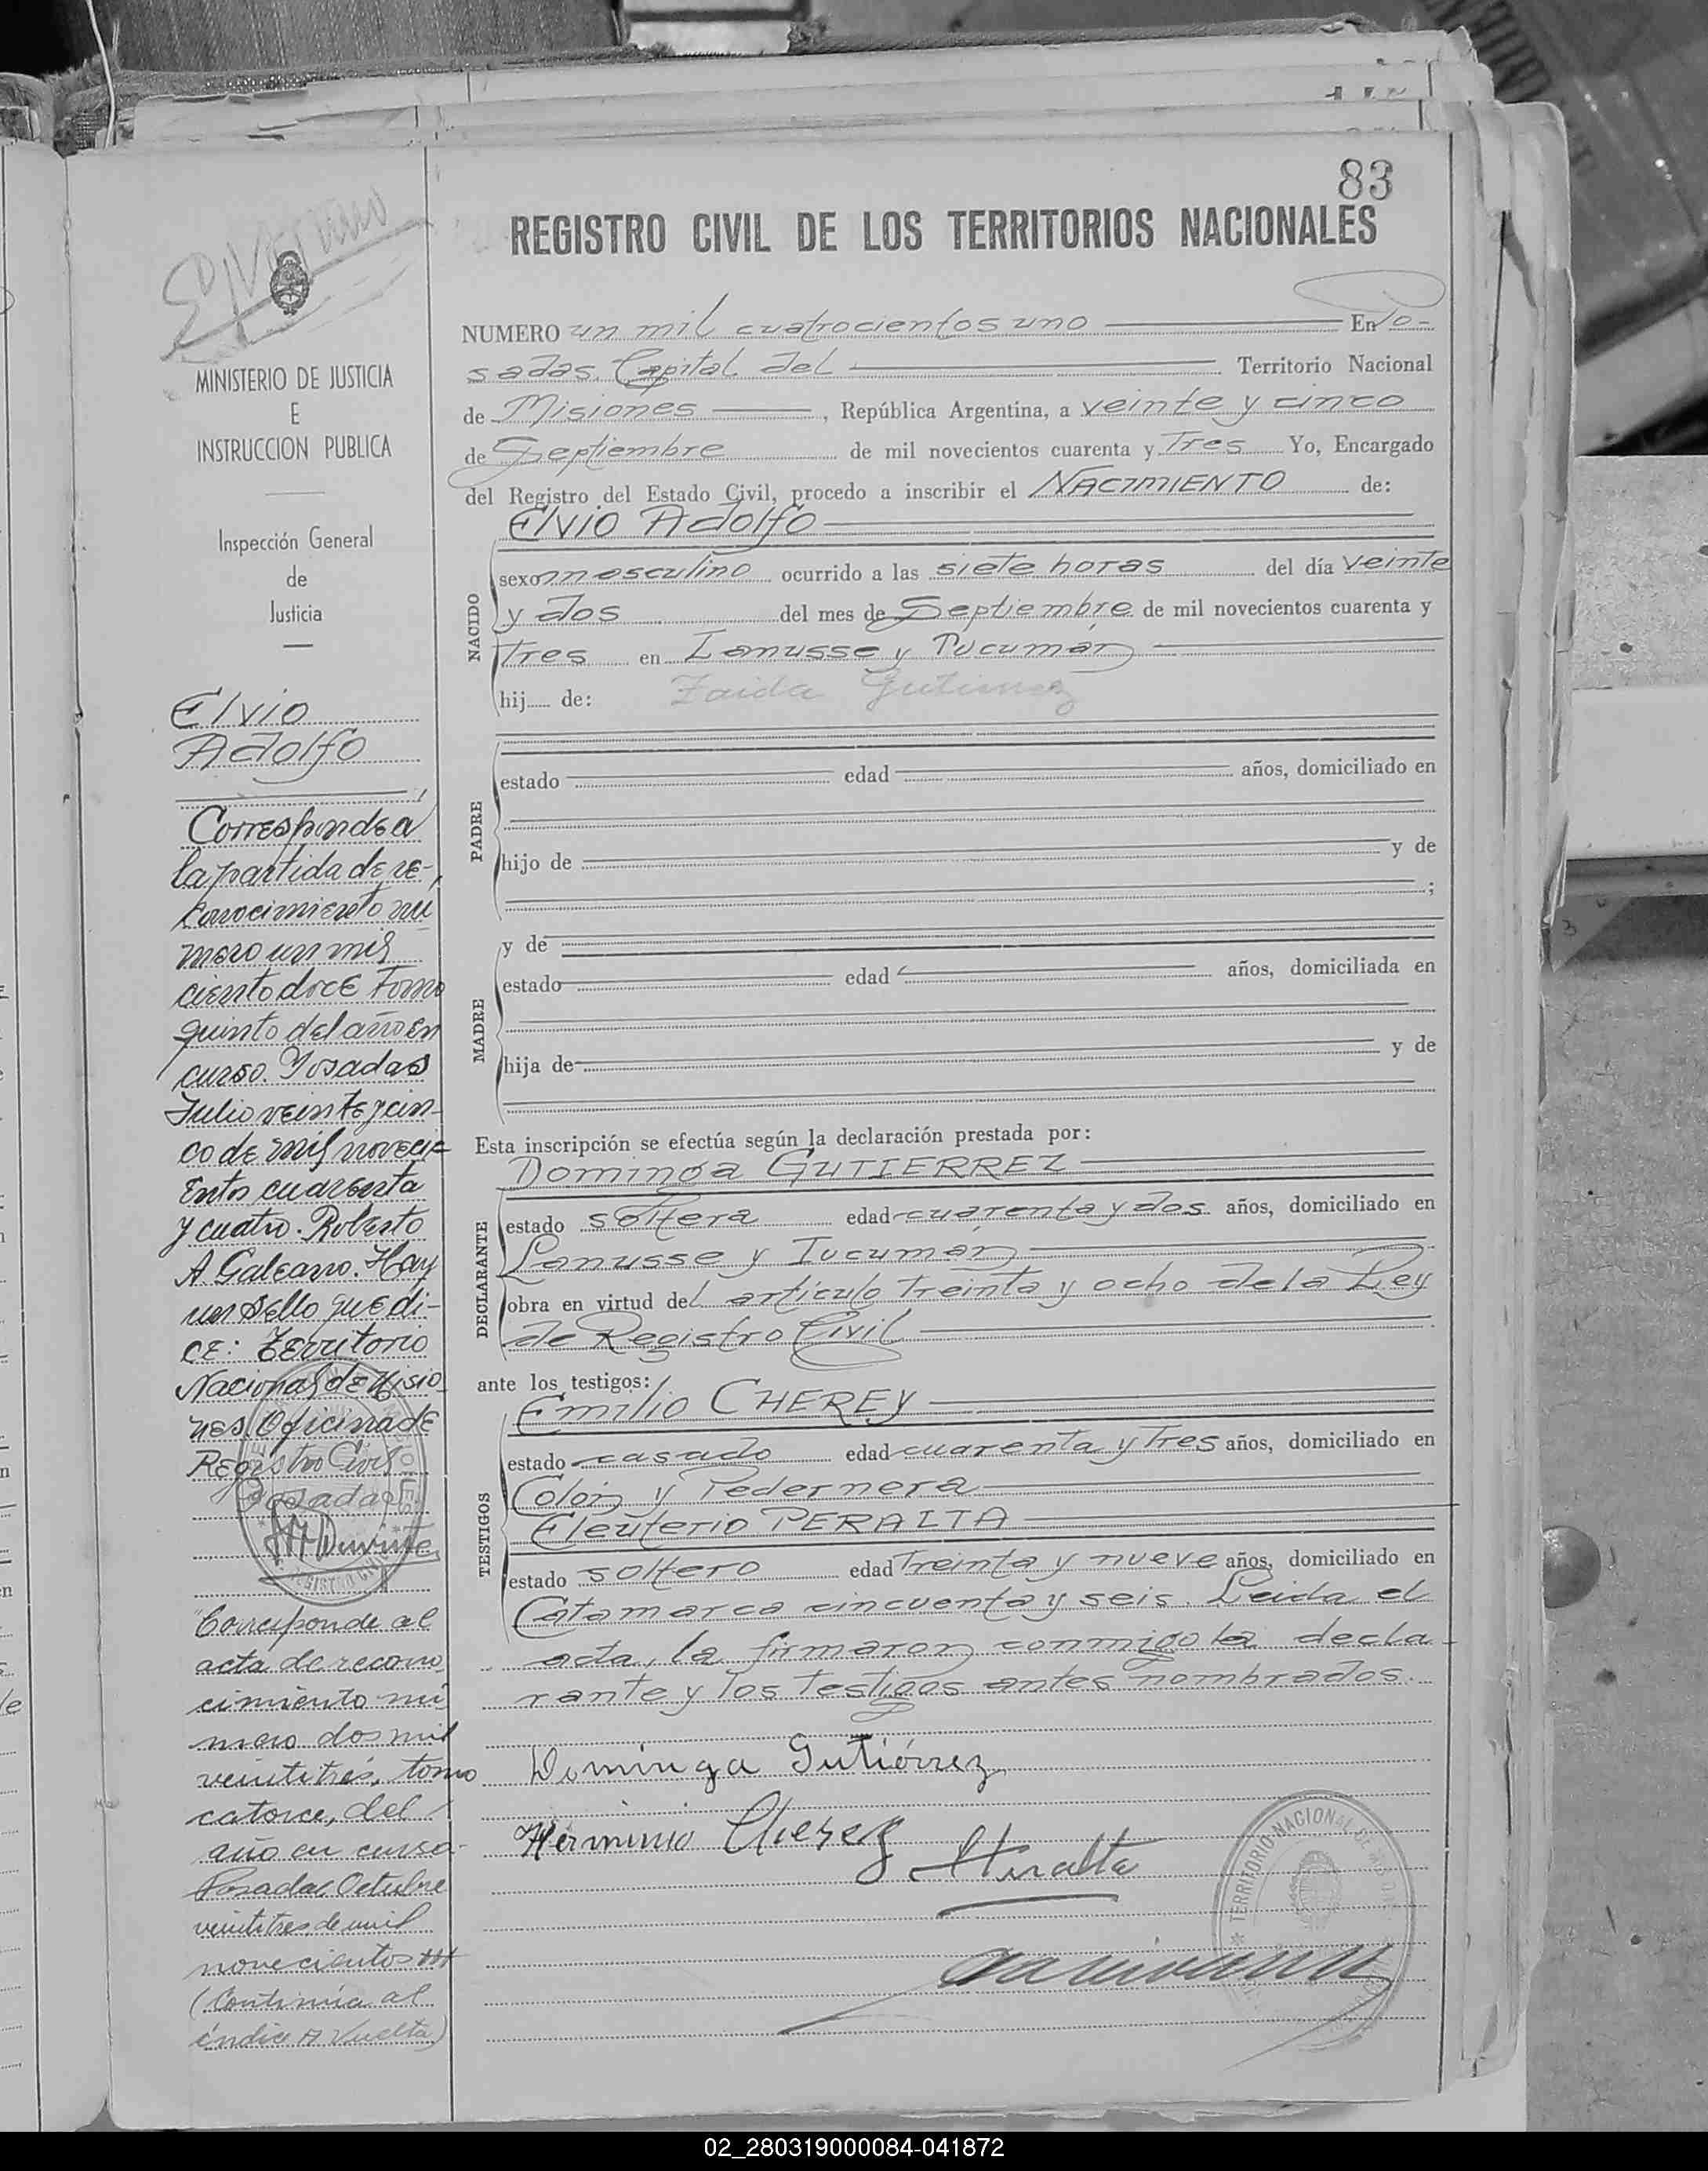 83
REGISTRO CIVIL DE LOS TERRITORIOS NACIONALES
NUMERO un mil cuatrocientos uno En Po-
sadas, Capital del Territorio Nacional
de Misiones, República Argentina, a veinte y cinco
de Septiembre de mil novecientos cuarenta y Tres Yo, Encargado
del Registro del Estado Civil, procedo a inscribir el NACIMIENTO de:
NACIDO
Elvio Adolfo
sexo masculino ocurrido a las siete horas del día veinte
y dos del mes de Septiembre de mil novecientos cuarenta y
Tres en Lanusse y Tucumán
hij de: Zaida Gutierrez
PADRE
estado edad años, domiciliado en
hijo de y de
;
MADRE
y de
estado edad años, domiciliada en
hija de y de
Esta inscripción se efectúa según la declaración prestada por:
DECLARANTE
Dominga GUTIERREZ
estado soltera edad cuarenta y dos años, domiciliado en
Lanusse y Tucumán
obra en virtud del artículo treinta y ocho de la Ley
de Registro Civil
ante los testigos:
TESTIGOS
Emilio CHEREY
estado casado edad cuarenta y Tres años, domiciliado en
Colón y Pedernera
Eleuterio PERALTA
estado soltero edad Treinta y nueve años, domiciliado en
Catamarca cincuenta y seis. Leida el
acta, la firmaron conmigo la decla-
rante y los testigos antes nombrados.
Dominga Gutiérrez
Herminio Cherey
TERRITORIO NACIONAL DE MISIONES
MINISTERIO DE JUSTICIA
E
INSTRUCCION PUBLICA
Inspección General
de
Justicia
Elvio
Adolfo
Corresponde a
la partida de re-
conocimiento nú
mero un mil
ciento doce Tomo
quinto del año en
curso. Posadas
Julio veinte y cin-
co de mil noveci-
entos cuarenta
y cuatro. Roberto
A Galeano. Hay
un sello que di-
ce: Territorio
Nacional de Misio
nes. Oficina de
Registro Civil
Posadas
Corresponde al
acta de recono
cimiento nú
mero dos mil
veintitrés, tomo
catorce, del
año en curso.
Posadas, Octubre
veintitres de mil
novecientos
(Continúa al
índice A Vuelta)
02_280319000084-041872